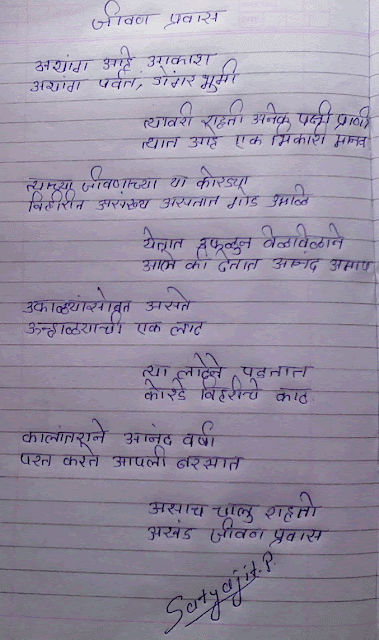 जीवन प्रवास
अथांग आहे आकाश
अथांग पर्वत, डोंगर भुमी
त्यावरी राहती अनेक पक्षी प्राणी
त्यात आहे एक भिकारी मानव
त्याच्या जीवनाच्या या कोरड्या
विहीरीत असंख्य असतात गोड उमाळे
येतात उफळुन वेळोवेळाने
आले की देतात आनंद अमाप
उकाळ्यांसोबत असते
उन्हाळ्याची एक लाट
त्या लाटेने पडतात
कोरडे विहरीचे काठ
कालांतराने आनंद वर्षा
परत करते आपली बरसात
असाच चालु राहतो
अखंड जीवन प्रवास
Satyajit.P.